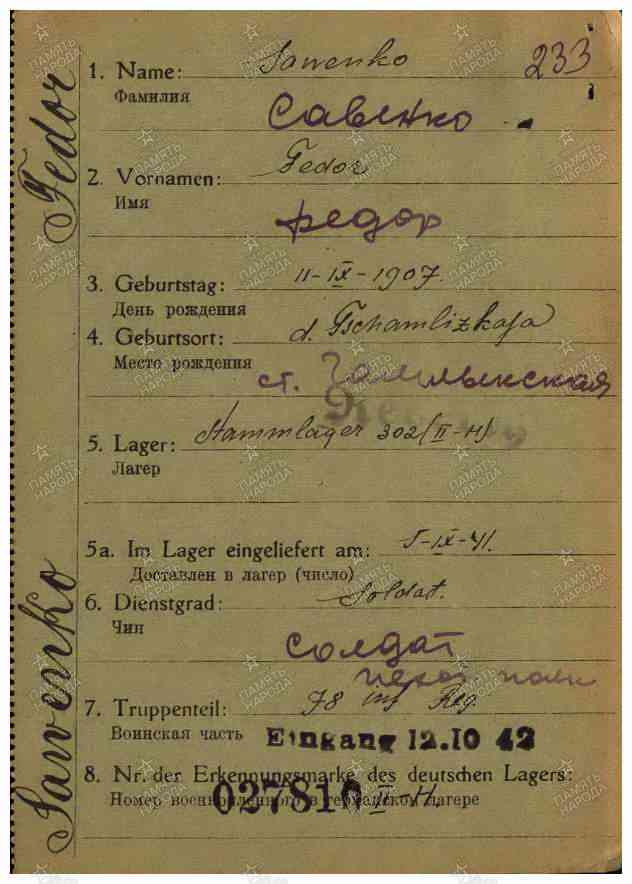 233
1. Name: Sawenko
Фамилия
Савенко
2. Vornamen: Fedor
Имя
Федор
3. Geburtstag: 11-IX-1907.
День рождения
4. Geburtsort: d. Tschamlizkaja
Место рождения
ст.
5. Lager: Stammlager 302 (II-H)
Лагерь
5a. Im Lager eingeliefert am: 5-IX-41.
Доставлен в лагерь (число)
6. Dienstgrad: Soldat.
Чин
солдат
полк
7. Truppenteil: 78 inf Reg.
Воинская часть
Eingang 12.10 42
8. Nr. der Erkennungsmarke des deutschen Lagers:
Номер военнопленного в германском лагере
027810 II-H.
Sawenko Fedor
ПАМЯТЬ НАРОДА